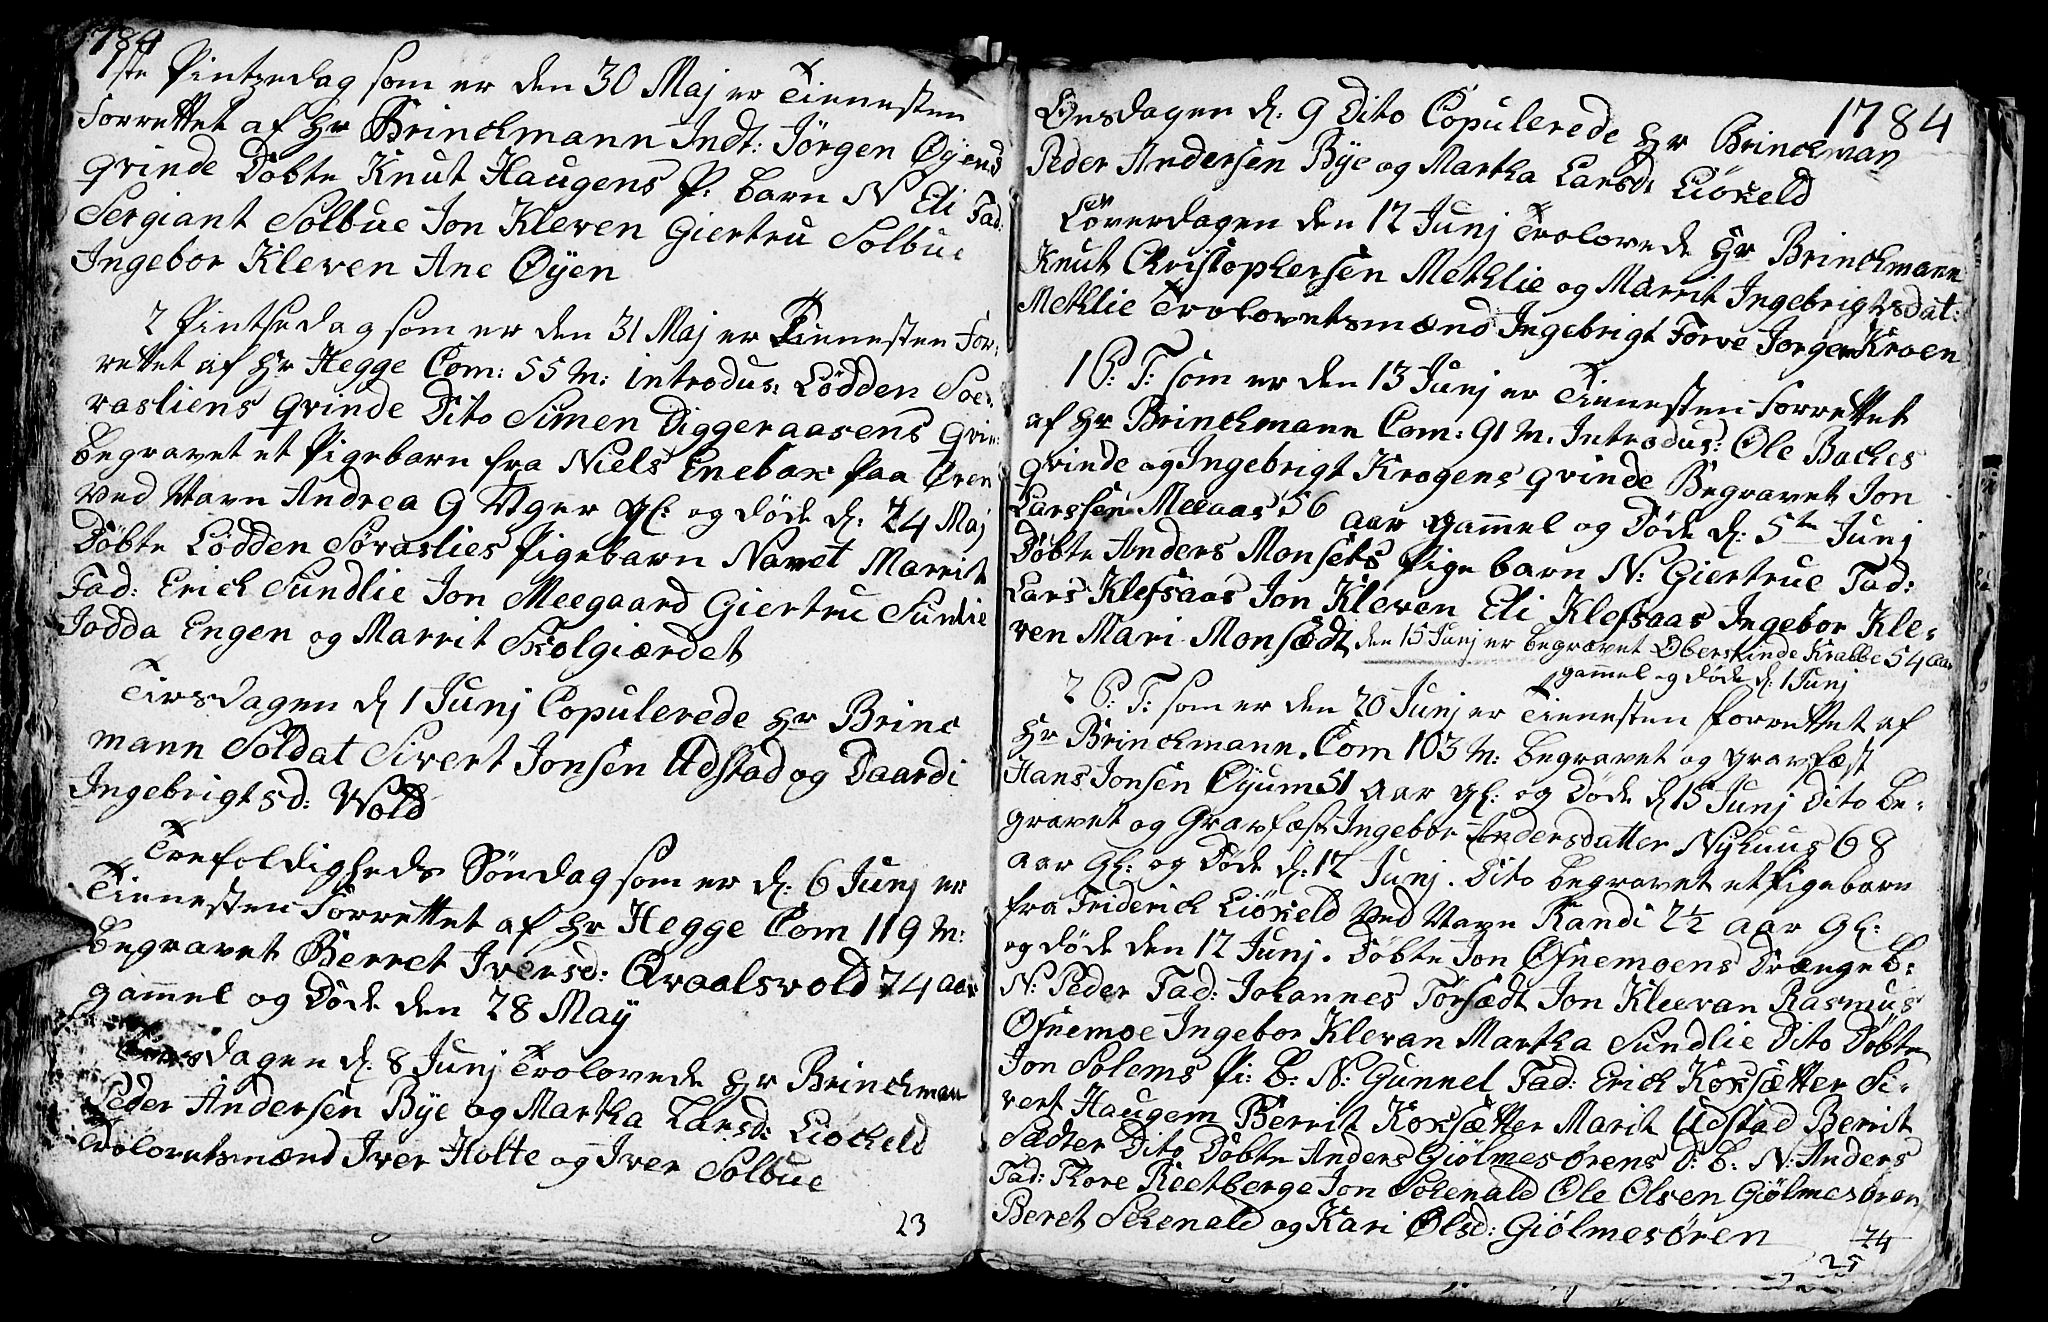 1784
1ste Pintzedag som er den 30 Maj er Tienesten
Forrettet af Hr Brinckmann Indt: Jörgen Øyens
qvinde Döbte Knut Haugens P: barn N Eli Fad:
Sergiant Solbue Jon Kleven Giertru Solbue
Ingebor Kleven Ane Øyen
2 Pintsedag som er den 31 Maj er Tienesten For:
rettet af Hr Hegge Com: 55 M: introdus: Lödden Soe:
rasliens qvinde Dito Simen Diggeraasens qvin:
Begravet et Pigebarn fra Niels Enebak paa Øren
Ved Navn Andrea 9 Uger gl: og döde d: 24 Maj
Döbte Lödden Söraslies Pigebarn Navet Marrit
Fad: Erich Sundlie Jon Meegaard Giertru Sunlie
Jodda Engen og Marrit Skolgiærdet
Tirsdagen d 1 Junj Copulerede Hr Brinc
mann Soldat Sivert Jonsen Udstad og Baardi
Ingebrigtsd: Wold
Trefoldigheds Söndag som er d: 6 Junj er
Tienesten Forrettet af Hr Hegge Com 119 M:
Begravet Berret Iversd: Qvaalsvold 74 aar
gammel og Döde den 28 May
Tirsdagen d: 8 Junj Trolovede Hr Brinckman
Peder Andersen Bye og Martha Larsd: Liökeld
Trolovetsmænd Iver Holte og Iver Solbue
23
1784
Onsdagen d: 9 Dito Copulerede Hr Brinckman
Peder Andersen Bye og Martha Larsd: Liökeld
Löverdagen den 12 Junj Trolovede Hr Brinckmann
Knut Christophersen Methlie og Marrit Ingebrigtsdat:
Methlie Trolovetsmænd Ingebrigt Forve Jorgen Kroen
1 S: T: som er den 13 Junj er Tienesten Forrettet
af Hr Brinckmann Com: 91 M. Introdus: Ole Baches
qvinde og Ingebrigt Krogens qvinde Begravet Jon
Larssen Meeaas 56 aar gammel og Döde d: 5te Junj
Döbte Anders Monsets Pige barn N: Giertrue Fad:
Lars Klefsaas Jon Kleven Eli Klefsaas Ingebor Kle:
ven Mari Monsædt den 15 Junj er begravet Oberstinde Krabbe 54 aar
gammel og döde d: 1 Junj
2 S: T: som er den 20 Junj er Tienesten forrettet af
Hr Brinckmann. Com 103 M: begravet og gravfæst
Hans Jonsen Øyum 51 aar gl: og Döde d 15 Junj Dito be:
gravet og Gravfæst Ingebor Andersdatter Nyhuus 68
aar gl: og Döde d: 12 Junj. Dito begravet et Pigebarn
fra Friderich Liökeld Ved Navn Randi 2½ aar gl:
og döde den 12 Junj. Döbte Jon Øfnemoens Drænge b:
N: Peder Fad: Johannes Törsædt Jon Klevan Rasmus
Øfnemoe Ingebor Klevan Martha Sundlie Dito Döbte
Jon Solems Pi: b: N: Gunnel Fad: Erich Koksætter Si:
vert Haugem Berrit Koksætter Marit Udstad Berrit
Sædter Dito Döbte Anders Giölmesörens D: b: N: Anders
Fad: Thore Reetberge Jon Schenald Ole Olsen Giölmesören
Beret Schenald og Kari Olsd: Giölmesören
24
25